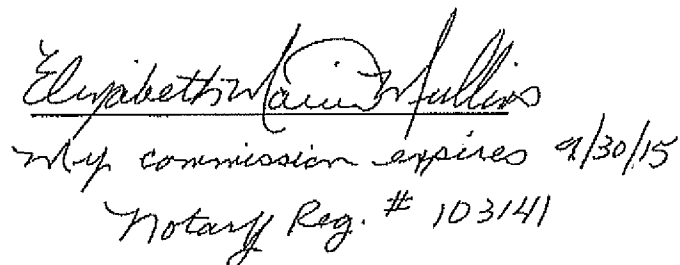 Elizabeth Marie Mullins
My commission expires 9/30/15
Notary Reg. # 103141